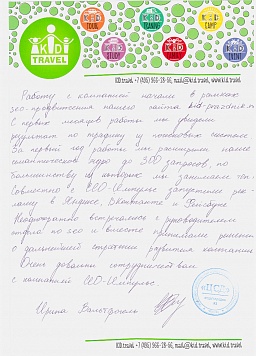 KIDI
TRAVEL
KIDI TOUR
KIDI TRAINING
KIDI CAMP
KIDI STUDY
KIDI.travel +7 (495) 966-28-66, mail@kid.travel, www.kid.travel
Работу с компанией начали в рамках
seo-продвижения нашего сайта
С первых месяцев работы мы увидели
результат по трафику и поисковым системам
За первый год работы мы расширили наше
семантическое ядро до 500 запросов, по
большинству из которых мы занимаем топ.
Совместно с СЕО-Импульс запустили рек-
ламу в Яндексе, Вконтакте и Фейсбуке
Неоднократно встречались с руководителем
отдела по seo и вместе принимали решения
о дальнейшей стратегии развития компании
Очень довольны сотрудничеством
с компанией СЕО-Импульс
Ирина
KIDI.travel +7 (495) 966-28-66, mail@kid.travel, www.kid.travel